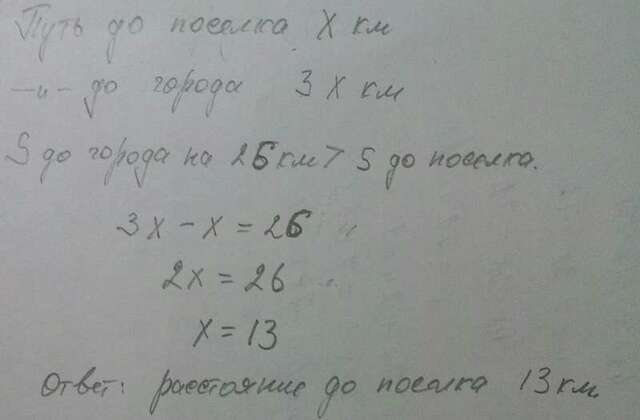 Путь до поселка X км
—"— до города 3X км
S до города на 26 км > S до поселка.
3x - x = 26
2x = 26
x = 13
Ответ: расстояние до поселка 13 км.